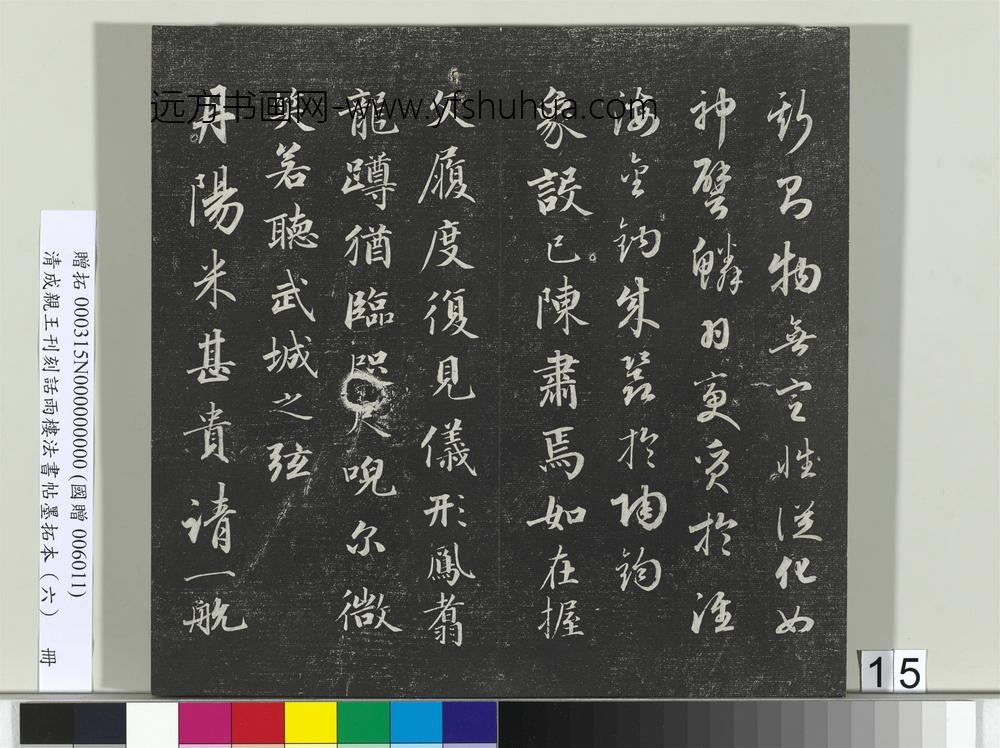 远方书画网-www.yfshuhua.com
斯物無定性從化如
神譬鱗羽變質於淮
海金鈞成器於陶鈞
象設已陳肅焉如在握
文履度復見儀形鳳翥
龍蹲猶臨咫尺睨尔微
笑若聽武城之弦
丹陽米甚貴請一航
贈拓 000315N000000000 (國贈 006011)
清成親王刊刻話雨樓法書帖墨拓本(六) 冊
15